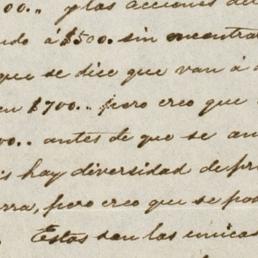 00.. y las acciones de
ndo á $500. sin encontra
que se dice que van á
en $700.. pero creo que
00.. antes de que se an
is hay diversidad de pr
rra, pero creo que se po
Estas son las unicas